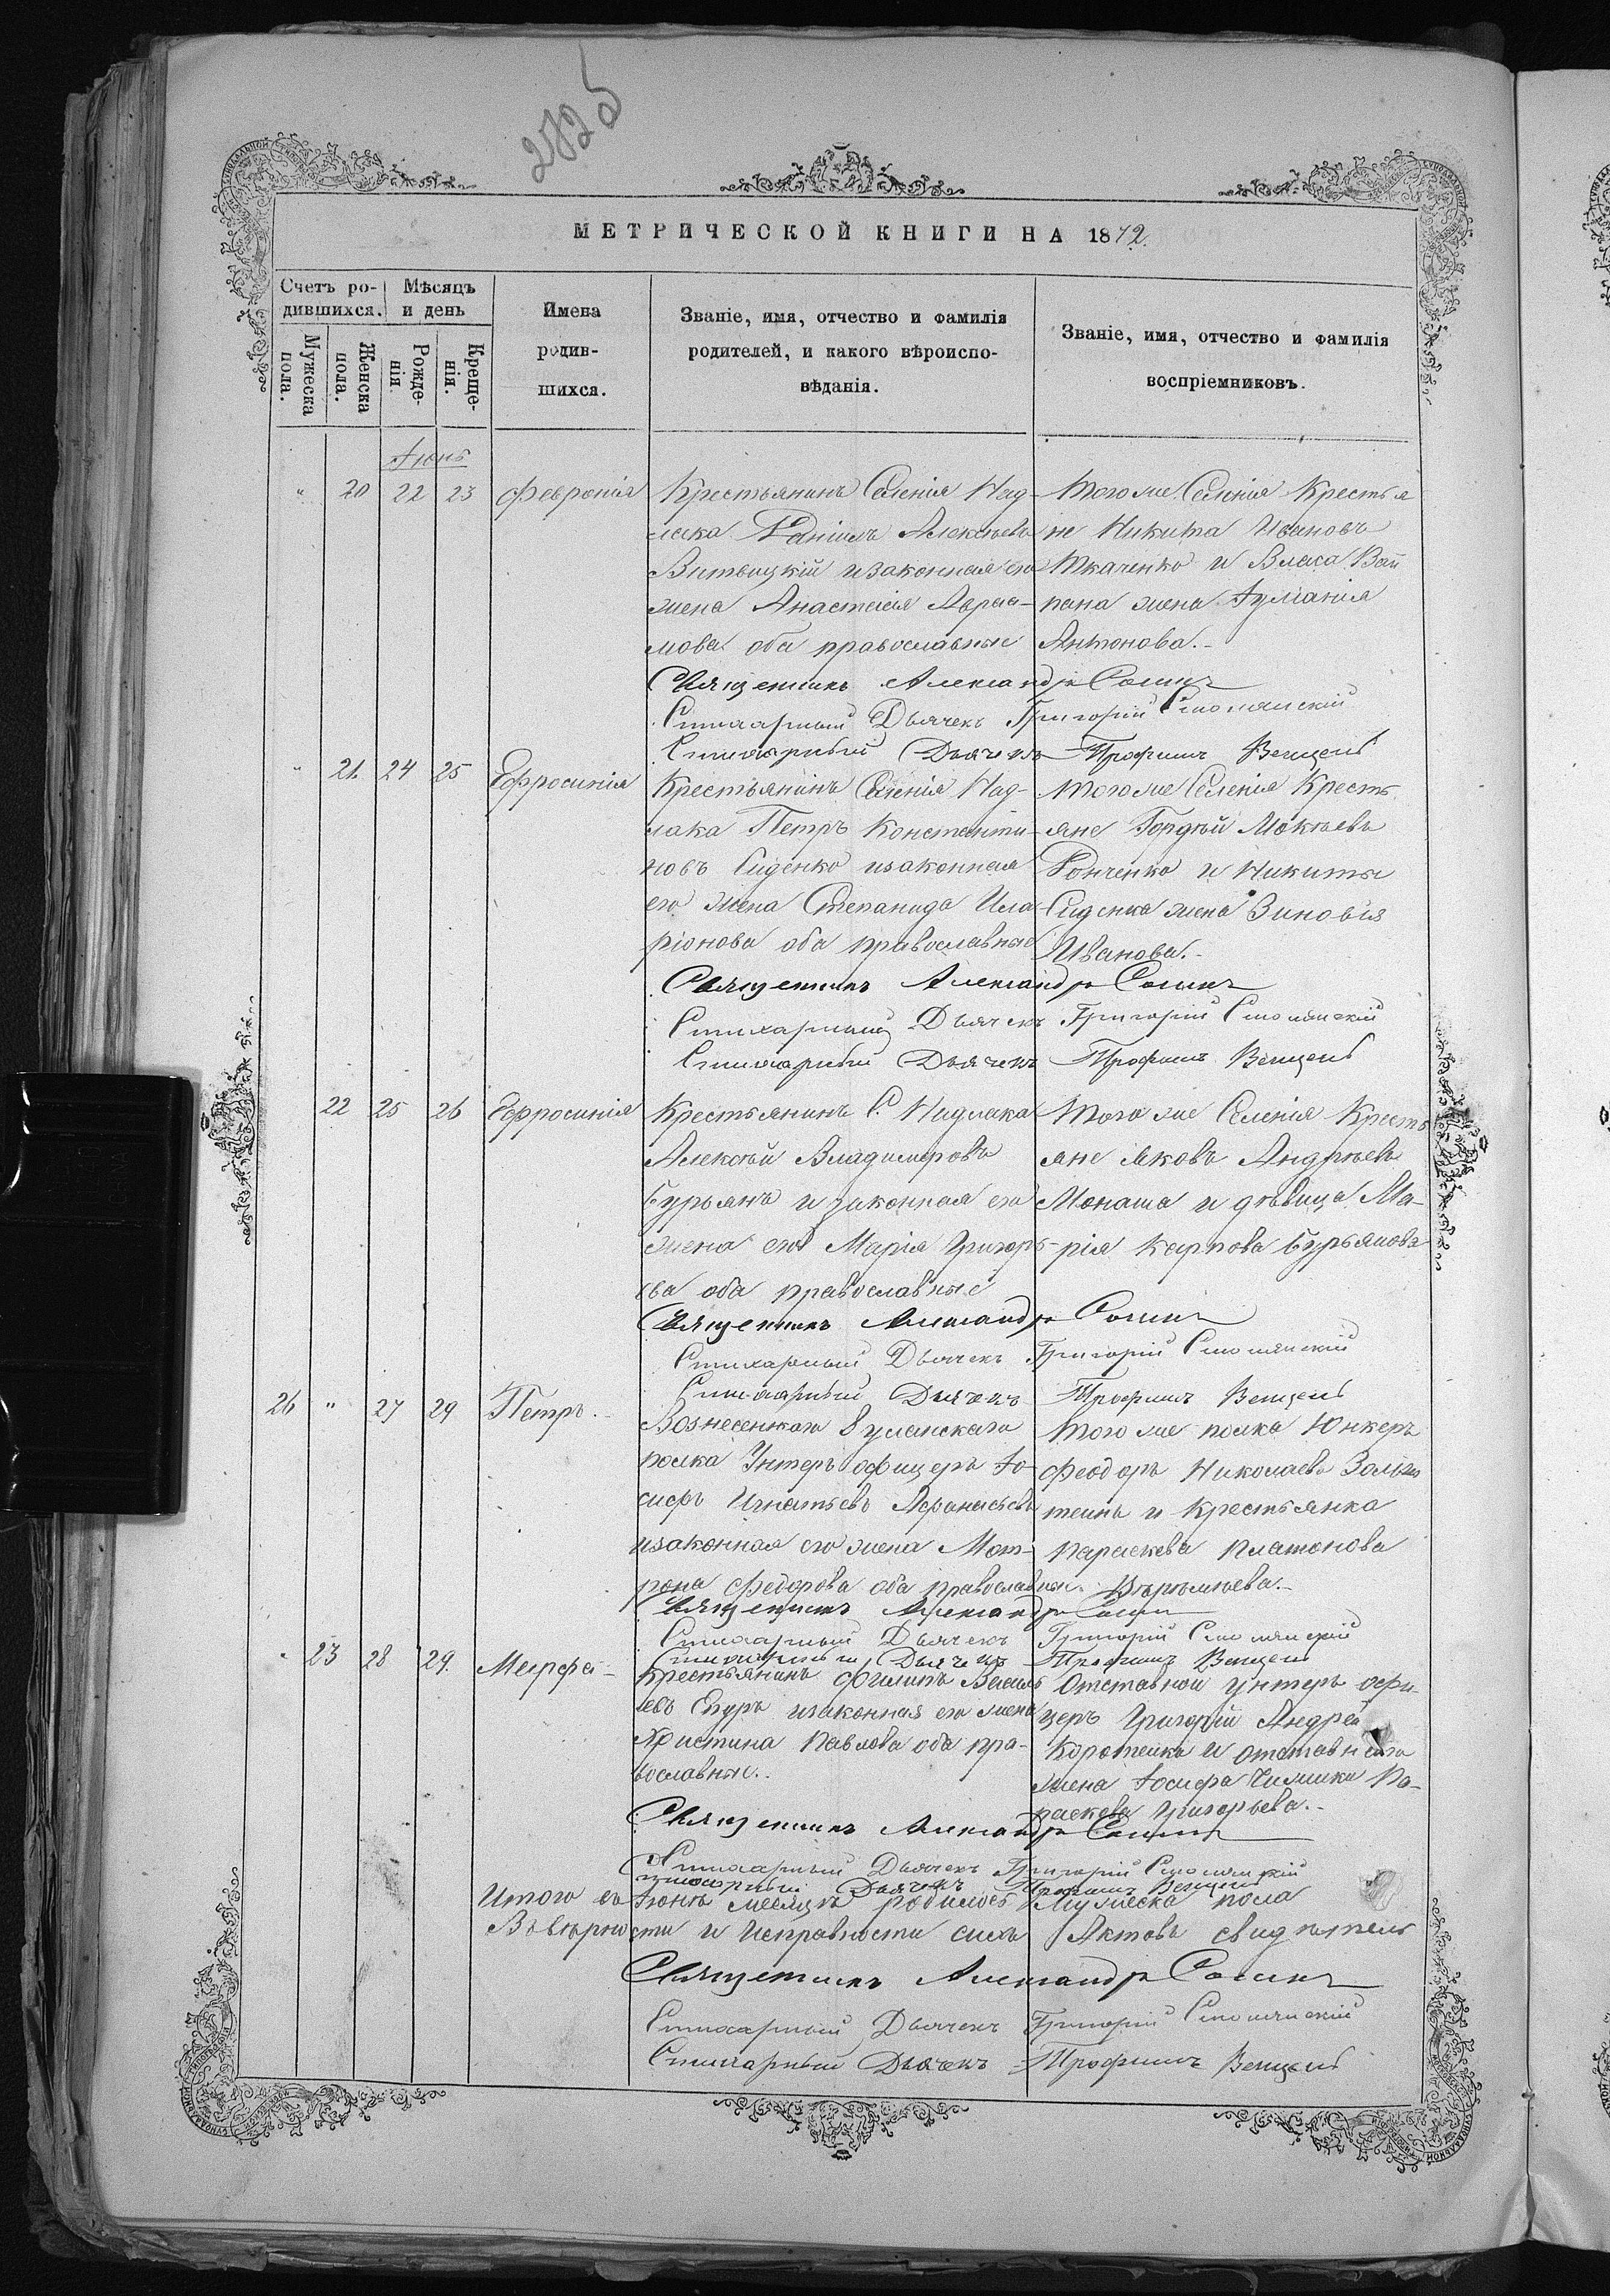 МЕТРИЧЕСКОЙ КНИГИ НА 1872.
Счетъ ро-
дившихся.
Мѣсяцъ
и день
Мужеска
пола.
Женска
пола.
Рожде-
нія.
Креще-
нія.
Имена
родив-
шихся.
Званіе, имя, отчество и фамилія
родителей, и какого вѣроиспо-
вѣданія.
Званіе, имя, отчество и фамилія
воспріемниковъ.
Іюнь
" 20 22 23 Февронія
Крестьянинъ Селенія Над-
лака Даніилъ Алексѣевъ
Витвицкій изаконная его
жена Анастасія
оба православные
Тогоже Селенія Крестья
не Никита Ивановъ
Ткаченко и Власа
жена Іуліанія
Антонова.-
Священникъ Александръ
Стихарный Дьячекъ Григорій Смолянскій
Стихарный Дьячекъ Трофимъ Венцель
" 21. 24 25 Ефросинія
Крестьянинъ Селенія Над-
лака Петръ Константи-
новъ Сиденко изаконная
его жена Степанида Ила-
ріонова оба православные
Тогоже Селенія Кресть
яне Гордѣй Мокѣевъ
и Никиты
Сиденка жена Зиновія
Иванова.-
Священникъ Александръ
Стихарный Дьячекъ Григорій Смолянскій
Стихарный Дьячекъ Трофимъ Венцель
22 25 26 Ефросинія
Крестьянинъ С. Надлака
Алексѣй Владимировъ
Бурьянъ и законная его
жена его Марія Григорь-
ева оба православные
Того же Селенія Кресть
яне Яковъ Андреевъ
Монаша и дѣвица Ма-
рія Карпова Бурьянова
Священникъ Александръ
Стихарный Дьячекъ Григорій Смолянскій
Стихарный Дьячекъ Трофимъ Венцель
26 " 27 29 Петръ.
Вознесенскаго Уланскаго
полка Унтеръ офицеръ Іо-
сифъ Игнатьевъ Афанасьевъ
изаконная его жена Мот-
рона Федорова оба православные.
Того же полка Юнкеръ
Феодоръ Николаевъ
и Крестьянка
Параскева Платонова
Священникъ Александръ
Стихарный Дьячекъ Григорій Смолянскій
Стихарный Дьячекъ Трофимъ Венцель
" 23 28 29. Марфа-
Крестьянинъ Филипъ Василь
евъ изаконная его жена
Христина Павлова оба пра-
вославные..
Отставной унтеръ офи-
церъ Григорій Андрей
и отставнаго
жена Іосифа Па-
раскева Григорьева.-
Священникъ Александръ
Стихарный Дьячекъ Григорій Смолянскій
Стихарный Дьячекъ Трофимъ Венцель
Итого въ Іюнѣ месяцѣ родилось Мужеска пола
и исправности сихъ Актовъ свидѣтель
Священникъ Александръ
Стихарный Дьячекъ Григорій Смолянскій
Стихарный Дьячекъ Трофимъ Венцель